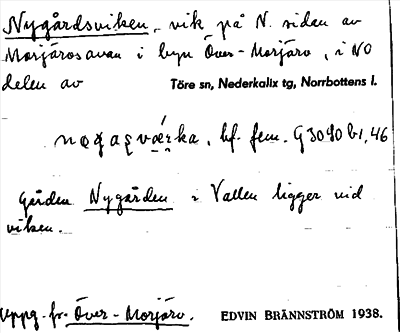 Nygårdsviken, vik på N. sidan av
Morjärosavan i byn Över-Morjärv, i NO
delen av Töre sn, Nederkalix tg, Norrbottens l.
bf. fem. G 3090 b1, 46
Gården Nygården i Vallen ligger vid
viken.
Uppg. fr. Över-Morjärv. EDVIN BRÄNNSTRÖM 1938.